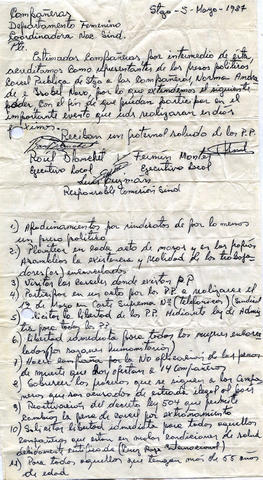 Compañeras Stgo - 5 - Mayo - 1987
Departamento Femenino
Coordinadora Nac Sind.
Pte.
Estimadas Compañeras por intermedio de esta,
acreditamos como representantes de los presos políticos
Carcel Pública de Stgo a las Compañeras, Norma Aranda
e Isabel Mayo por lo que extendemos el siguiente
poder con el fin de que puedan participar en el
importante evento que uds realizaran en dias
proximos.
Reciban un paternal saludo de los P.P.
Raul Blanchet Fermin Montes
Ejecutivo Local Ejecutivo Local
Luis Guzman
Responsable Comision Sind
1) Apadrinamientos por sindicatos de por lo menos
un preso politico
2) Plantear en cada acto de mazas y en las propias
Asambleas la existencia y realidad de los trabaja-
dores(as) encarcelados
3) Visitas las carceles donde existan P.P
4) Participar en un acto por los P.P. a realizarse el
de Mayo en Corte Suprema
Solicitar la libertad de los P.P. mediante ley de Amnis-
tia para todos los P.P
6) Libertad inmediata para todas las mujeres encarce-
ladas (por razones humanitarias)
7) Hacer campaña por la No aplicacion de las penas
de muerte que afectan a 14 Compañeros
8) los procesos que se siguen a los compa-
ñeros que son acusados de entrada ilegal al pais
9) del decreto ley 504 que permite
cambiar la pena de carcel por extrañamiento
10) Solicitar libertad inmediata para todos aquellos
compañeros que estan en malas condiciones de salud
debidamente (Cruz Roja Internacional)
11) Para todos aquellos que tengan mas de 55 años
de edad